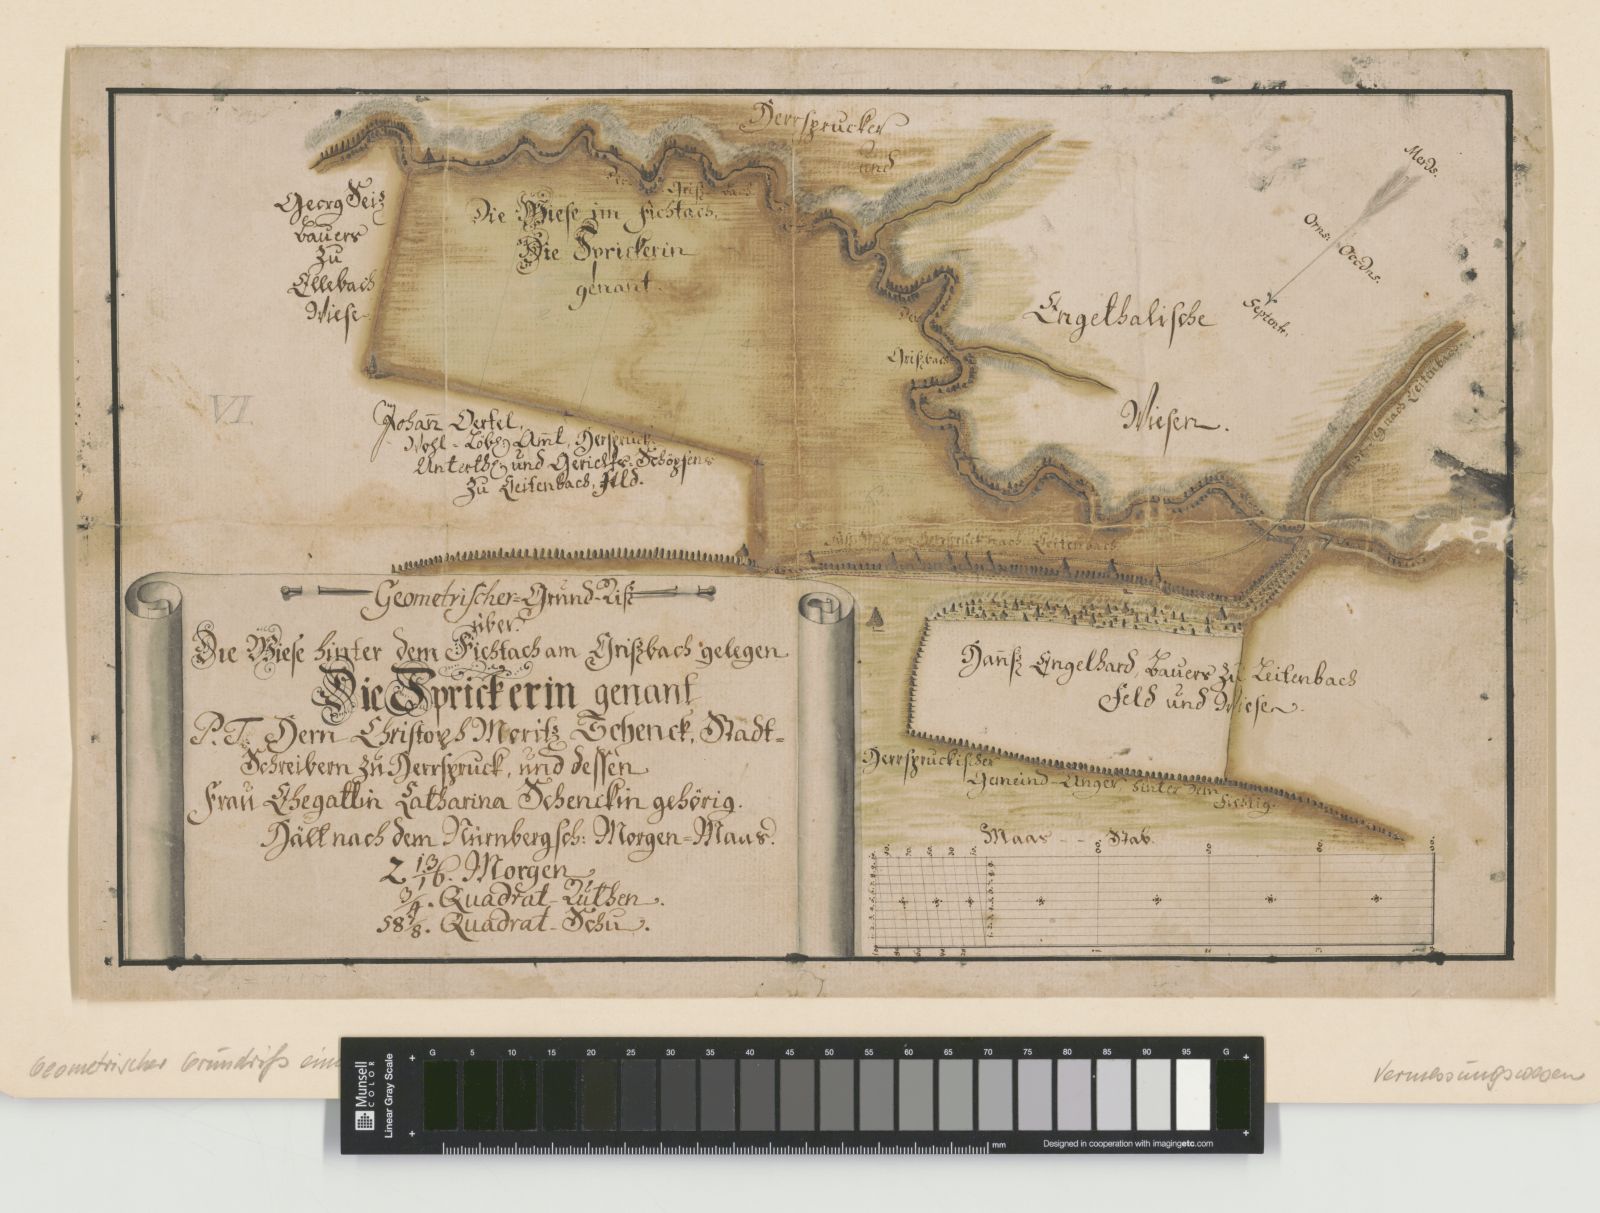 Herrsprucker
und
Georg Seiz
bauers
zu
Ellebach
Wiese
Der Grißbach
Die Wiese im Fichtach,
Die Sprickerin
genant.
Der
Grißbach
Engelthalische
Wiesen.
Merds.
Orns.
Occdns.
Septent.
VI
Johañ Oertel,
Wohl-Löbl. Amt, Herspruck:
Unterth. und Gerichts-Schöpfens
zu Leitenbach, Feld.
nach Leitenbach
Herrspruck nach Leitenbach
Geometrischer-Grund-Riß
über
Die Wiese hinter dem Fichtach am Grißbach gelegen
Die Sprickerin genant
P. T. Dern Christoph Moritz Schenck, Stadt-
Schreibern zu Herrspruck, und dessen
Frau Ehegattin Catharina Schenckin gehörig.
Hält nach dem Nürnbergsch: Morgen-Maas.
2 13/16. Morgen
3/4. Quadrat-Ruthen.
58 7/8. Quadrat-Schu.
Hañß Engelhard, Bauers zu Leitenbach
Feld und Wiesen.
Herrspruckischer
Gemeind-Anger hinter dem
Maas - - Stab.
Geometrischer Grundriß eine
Vermessungswesen
Munsell
COLOR
Linear Gray Scale
G 5 10 15 20 25 30 35 40 45 50 55 60 65 70 75 80 85 90 95 G
mm
Designed in cooperation with imagingetc.com